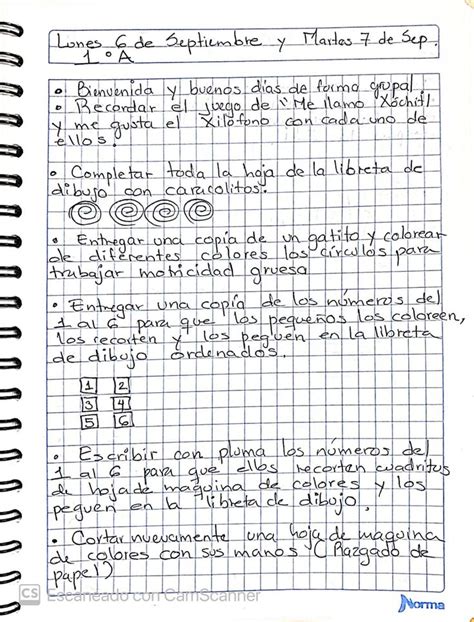 Lunes 6 de Septiembre y Martes 7 de Sep.
1°A
• Bienvenida y buenos días de forma grupal.
• Recordar el juego de "Me llamo Xóchitl
y me gusta el Xilófono con cada uno de
ellos.
• Completar toda la hoja de la libreta de
dibujo con caracolitos.
• Entregar una copia de un gatito y colorear
de diferentes colores los círculos para
trabajar motricidad gruesa
• Entregar una copia de los números del
1 al 6 para que los pequeños los coloreen,
los recorten y los peguen en la libreta
de dibujo ordenados.
1 2
3 4
5 6
• Escribir con pluma los números del
1 al 6 para que ellos recorten cuadritos
de hoja de maquina de colores y los
peguen en la libreta de dibujo.
• Cortar nuevamente una hoja de maquina
de colores con sus manos (Razgado de
papel)
CS Escaneado con CamScanner
Norma